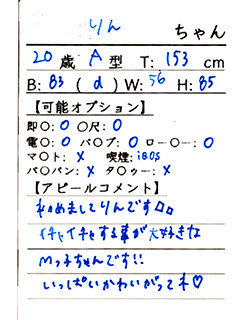 りん ちゃん
20歳 A型 T: 153 cm
B: 83 (d) W: 56 H: 85
【可能オプション】
即○: ○ ○尺: ○
電○: ○ バ○ブ: ○ ロー○ー: ○
マ○ト: × 喫煙: iQOS
パ○パン: × タ○ゥー: ×
【アピールコメント】
初めましてりんです
イチャイチャする事が大好きな
Mっ子ちゃんです!!
いっぱいかわいがってネ♡